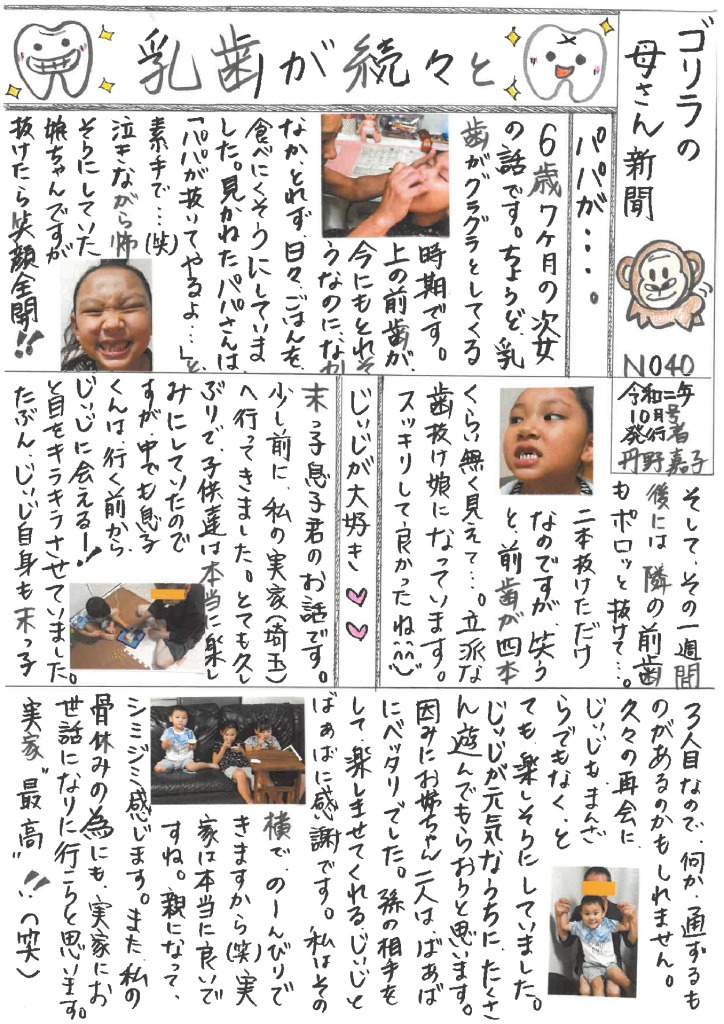 ゴリラの
母さん新聞
NO40
令和二年
10月号
発行者
丹野嘉子
乳歯が続々と
パパが・・・。
6歳7ケ月の次女
の話です。ちょうど、乳
歯がグラグラとしてくる
時期です。
上の前歯が、
今にもとれそ
うなのに、なか
なか、とれず、日々、ごはんを、
食べにくそうにしていま
した。見かねたパパさんは、
「パパが抜いてやるよ…」と、
素手で…(笑)
泣きながら怖
そうにしていた
娘ちゃんですが
抜けたら笑顔全開!!
そして、その一週間
後には隣の前歯
もポロッと抜けて…。
二本抜けただけ
なのですが、笑う
と、前歯が四本
くらい無く見えて…。立派な
歯抜け娘になっています。
スッキリして良かったね(^^)
じぃじが大好き
末っ子息子君のお話です。
少し前に、私の実家(埼玉)
へ行ってきました。とても久し
ぶりで、子供達は本当に楽し
みにしていたので
すが、中でも息子
くんは、行く前から、
じぃじに会えるー!
と目をキラキラさせていました。
たぶん、じぃじ自身も末っ子
3人目なので、何か、通ずるも
のがあるのかもしれません。
久々の再会に、
じぃじも、まんざ
らでもなく、と
ても、楽しそうにしていました。
じぃじが元気なうちに、たくさ
ん遊んでもらおうと思います。
因みにお姉ちゃん二人は、ばぁば
にベッタリでした。孫の相手を
して、楽しませてくれる、じぃじと
ばぁばに感謝です。私はその
横で、のーんびりで
きますから(笑)実
家は本当に良いで
すね。親になって、
シミジミ感じます。また、私の
骨休みの為にも、実家にお
世話になりに行こうと思います。
実家“最高”!!(笑)